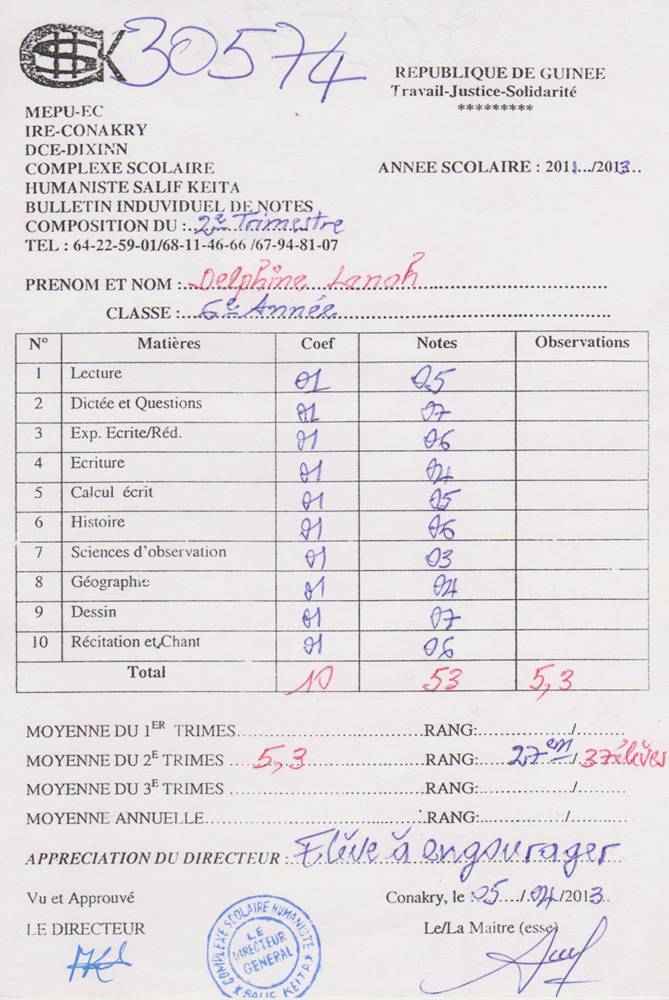 30574
REPUBLIQUE DE GUINEE
Travail-Justice-Solidarité
*********
MEPU-EC
IRE-CONAKRY
DCE-DIXINN
COMPLEXE SCOLAIRE
ANNEE SCOLAIRE : 2011.../2013...
HUMANISTE SALIF KEITA
BULLETIN INDUVIDUEL DE NOTES
COMPOSITION DU : 2e Trimestre
TEL : 64-22-59-01/68-11-46-66 /67-94-81-07
PRENOM ET NOM : Delphine Lanoh
CLASSE : 6e Année
N° Matières Coef Notes Observations
1 Lecture 01 05
2 Dictée et Questions 01 07
3 Exp. Ecrite/Réd. 01 06
4 Ecriture 01 04
5 Calcul écrit 01 05
6 Histoire 01 06
7 Sciences d'observation 01 03
8 Géographie 01 04
9 Dessin 01 07
10 Récitation et Chant 01 06
Total 10 53 5,3
MOYENNE DU 1ER TRIMES RANG: /
MOYENNE DU 2E TRIMES 5,3 RANG: 27em / 37élèves
MOYENNE DU 3E TRIMES RANG: /
MOYENNE ANNUELLE RANG: /
APPRECIATION DU DIRECTEUR : Elève à engourager
Vu et Approuvé Conakry, le 05/04/2013
LE DIRECTEUR Le/La Maitre (esse)
COMPLEXE SCOLAIRE HUMANISTE
LE
DIRECTEUR
GENERAL
SALIF KEITA